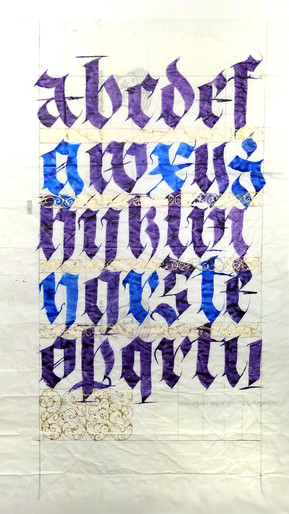 abcdef
gwxyz
hijklm
ngrste
opqrtu